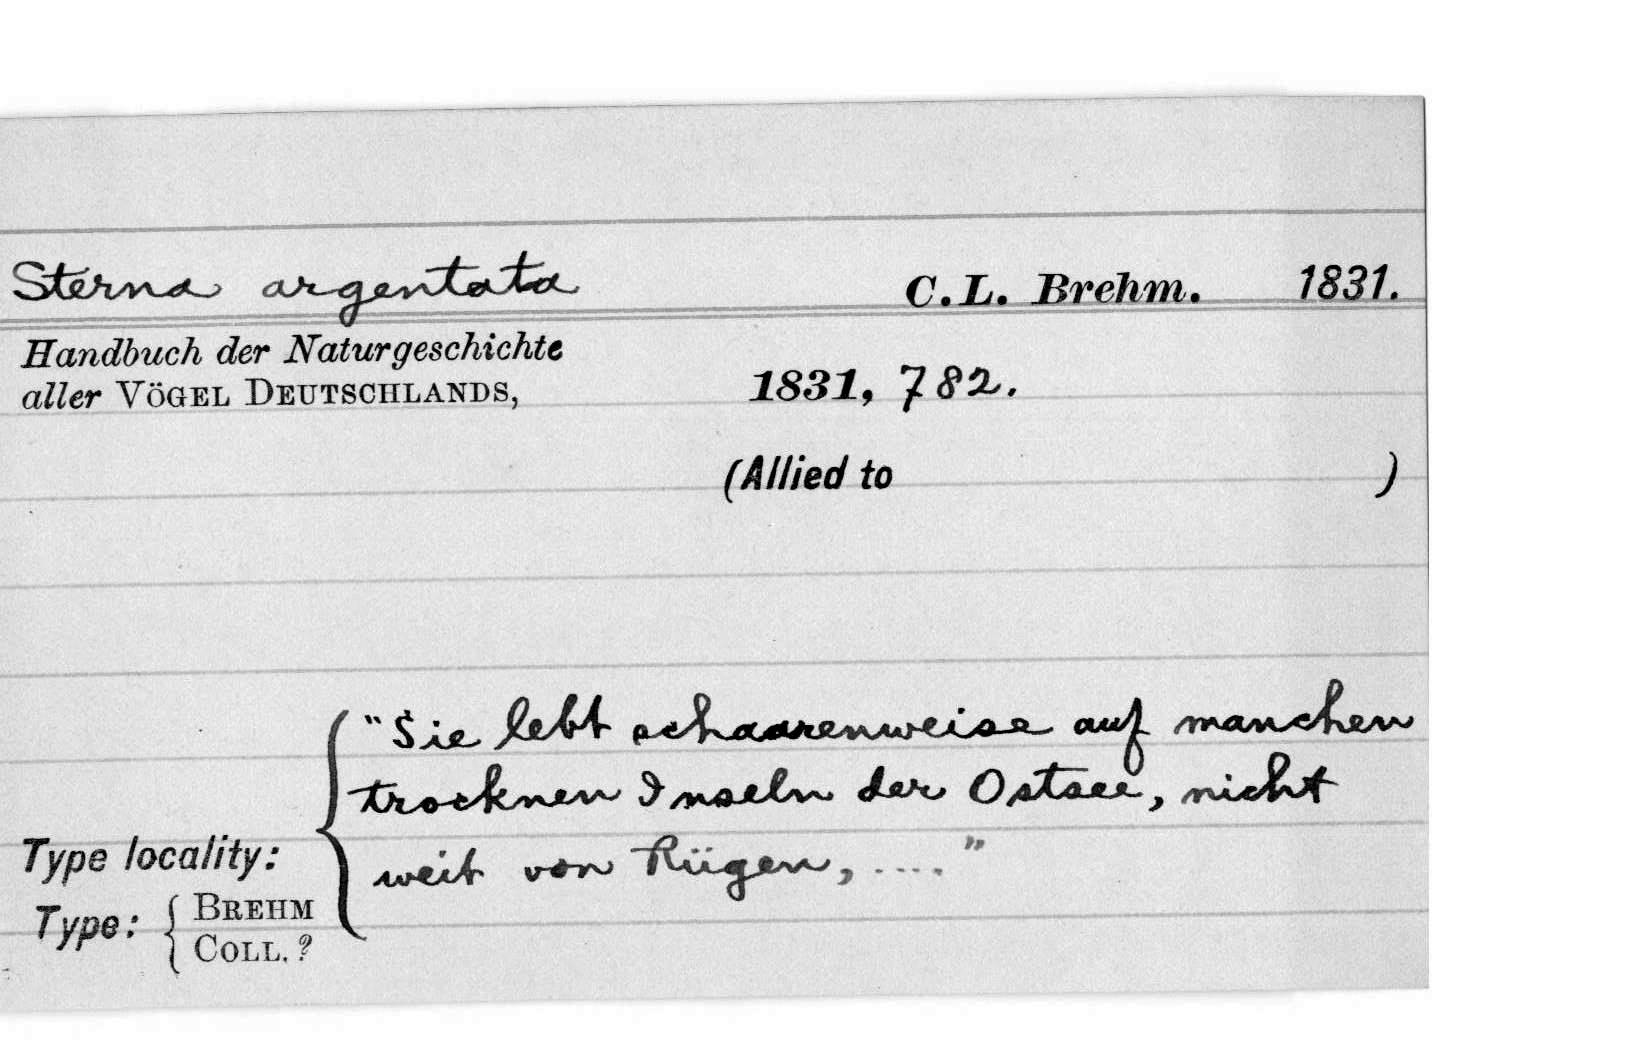 Sterna argentata C. L. Brehm. 1831.
Handbuch der Naturgeschichte
aller VÖGEL DEUTSCHLANDS, 1831, 782.
(Allied to )
"Sie lebt schaarenweise auf manchen
trocknen Inseln der Ostsee, nicht
weit von Rügen, ...."
Type locality:
Type: { BREHM
COLL. ?